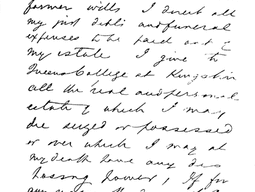 former wills I direct all
my just debts and funeral
expenses to be paid out of
my estate I give to
Queens College at Kingston
all the real and personal
estate of which I may
die seized or possessed
or over which I may at
my death have any dis
posing power, If for
any